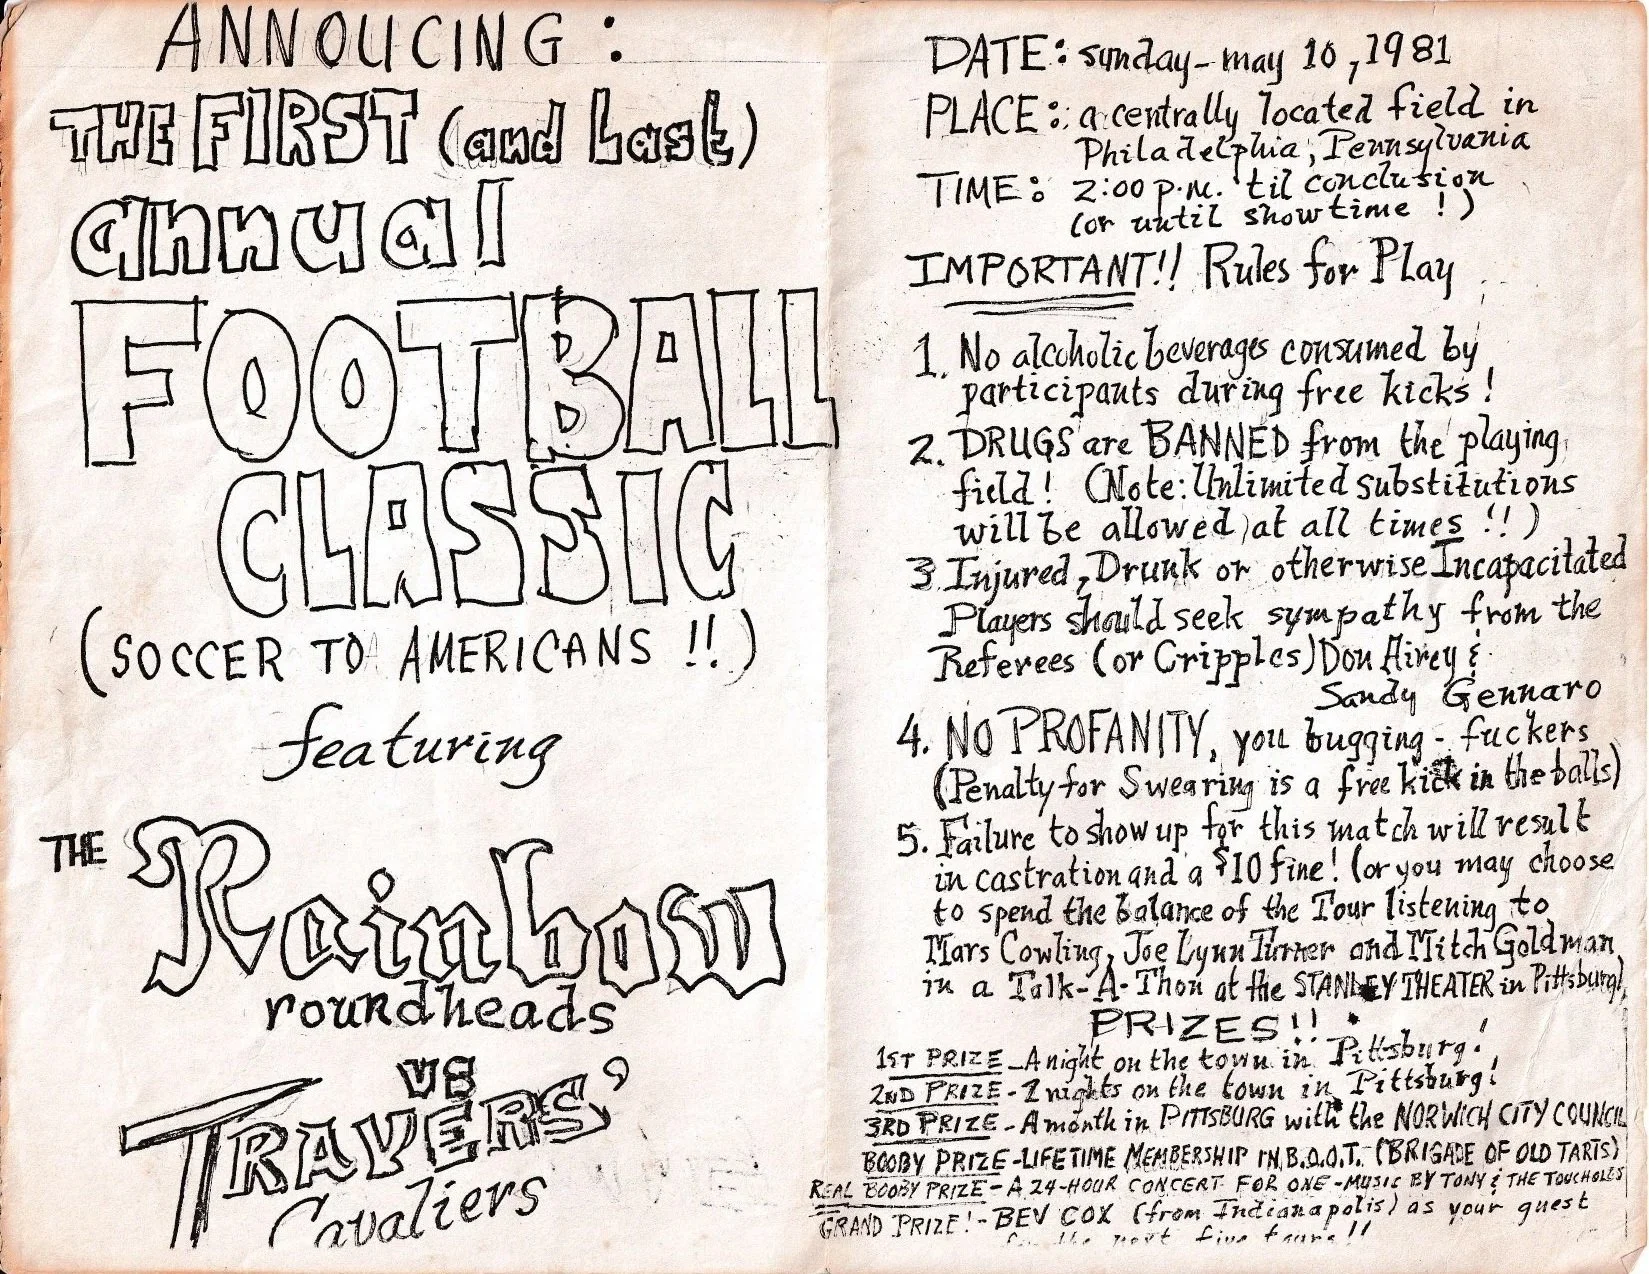 ANNOUCING :
THE FIRST (and Last)
annual
FOOTBALL
CLASSIC
(SOCCER TO AMERICANS !!)
featuring
THE Rainbow
roundheads
VS
TRAVERS'
Cavaliers
DATE: sunday - may 10, 1981
PLACE: a centrally located field in
Philadelphia, Pennsylvania
TIME: 2:00 p.m. 'til conclusion
(or until showtime !)
IMPORTANT!! Rules for Play
1. No alcoholic beverages consumed by
participants during free kicks !
2. DRUGS are BANNED from the playing
field ! (Note: Unlimited substitutions
will be allowed at all times !!)
3 Injured, Drunk or otherwise Incapacitated
Players should seek sympathy from the
Referees (or Cripples) Don Airey &
Sandy Gennaro
4. NO PROFANITY, you bugging - fuckers
(Penalty for Swearing is a free kick in the balls)
5. Failure to show up for this match will result
in castration and a $10 fine! (or you may choose
to spend the balance of the Tour listening to
Mars Cowling, Joe Lynn Turner and Mitch Goldman
in a Talk-A-Thon at the STANLEY THEATER in Pittsburg),
PRIZES!!
1ST PRIZE - A night on the town in Pittsburg!
2ND PRIZE - 2 nights on the town in Pittsburg!
3RD PRIZE - A month in PITTSBURG with the NORWICH CITY COUNCIL
BOOBY PRIZE - LIFETIME MEMBERSHIP IN B.O.O.T. (BRIGADE OF OLD TARTS)
REAL BOOBY PRIZE - A 24-HOUR CONCERT FOR ONE - MUSIC BY TONY & THE TOUCHOLES
GRAND PRIZE! - BEV COX (from Indianapolis) as your guest
for the next five tours!!